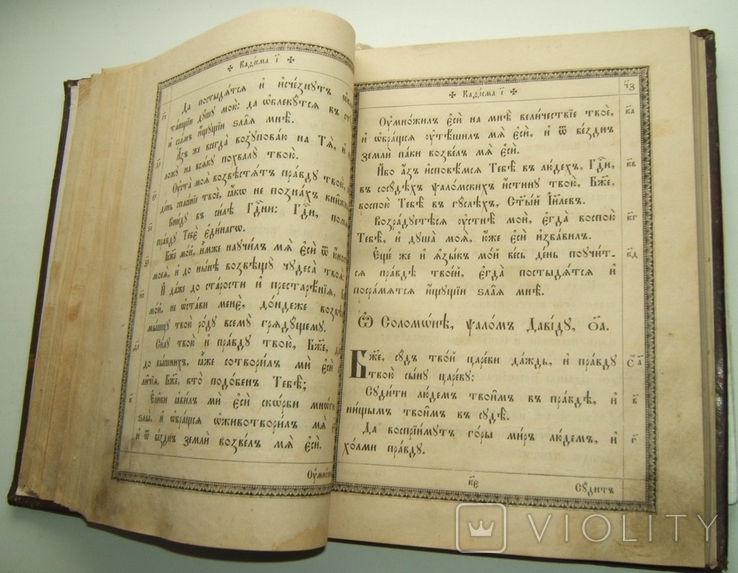 Каѳісма і҃
Да постыдятся и исчезнꙋтъ
тающіи дꙋшꙋ мою: да ѡблекꙋтся въ
и срамъ ищꙋщіи ѕлая мнѣ.
Азъ же всегда возꙋповаю на Тя, и
ложꙋ на всякꙋ похвалꙋ твою.
Оуста моя возвѣстятъ правдꙋ твою,
день спасеніе твое, іакѡ не познахъ книжная
Внидꙋ въ силѣ Гд҃ни: Гд҃и,
правдꙋ Тебе единагѡ.
Бж҃е мой, имже наꙋчилъ мя еси ѿ юности
моея, и до нынѣ возвѣщꙋ чꙋдеса твоя.
И даже до старости и престарѣнія,
мой, не ѡстави мене, дондеже возвѣщꙋ
мышцꙋ твою родꙋ всемꙋ грядꙋщемꙋ.
Силꙋ твою и правдꙋ твою, Бж҃е,
до вышнихъ, іаже сотворилъ ми еси
личія. Бж҃е, кто подобенъ Тебѣ;
Еликы іавилъ ми еси скѡрби мнѡги
ѕлы, и ѡбращся ѡживотворилъ мя
и ѿ бездн҃ъ земли возвелъ мя еси.
Оумножи
Каѳісма і҃
о҃з
Оумножилъ еси на мнѣ величествіе твое,
к҃а
и ѡбращся ꙋтѣшилъ мя еси, и ѿ бездн҃ъ
земли паки возвелъ мя еси.
Ибо азъ исповѣмся Тебѣ въ людехъ, Гд҃и,
к҃в
въ сосꙋдѣхъ псаломскихъ истинꙋ твою, Бж҃е,
воспою Тебѣ въ гꙋслехъ, Ст҃ый Іи҃левъ.
Возрадꙋетѣся ꙋстнѣ мои, егда воспою
к҃г
Тебѣ, и дꙋша моя, юже еси избавилъ.
Еще же и языкъ мой весь день поꙋчит-
к҃д
ся правдѣ твоей, егда постыдятся и
посрамятся ищꙋщіи ѕлая мнѣ.
Ѡ Соломѡнѣ, псаломъ Давідꙋ, о҃а.
Бж҃е, сꙋдъ твой цареви даждь, и правдꙋ
твою сынꙋ царевꙋ:
Сꙋдити людемъ твоимъ въ правдѣ, и
в҃
нищымъ твоимъ въ сꙋдѣ.
Да воспріимꙋтъ горы миръ людемъ, и
г҃
холми правдꙋ.
к҃е
Сꙋдитъ
VIOLITY